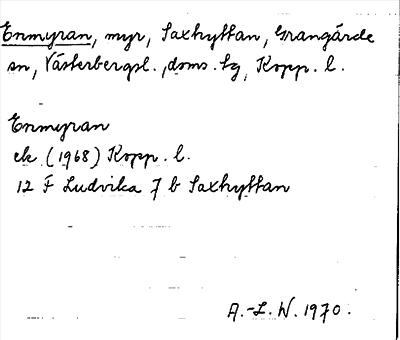 Enmyran, myr, Saxhyttan, Grangärde
sn, Västerbergsl., doms. tg, Kopp. l.
Enmyran
ek. (1968) Kopp. l.
12 F Ludvika 7 b Saxhyttan
A.-L. W. 1970.